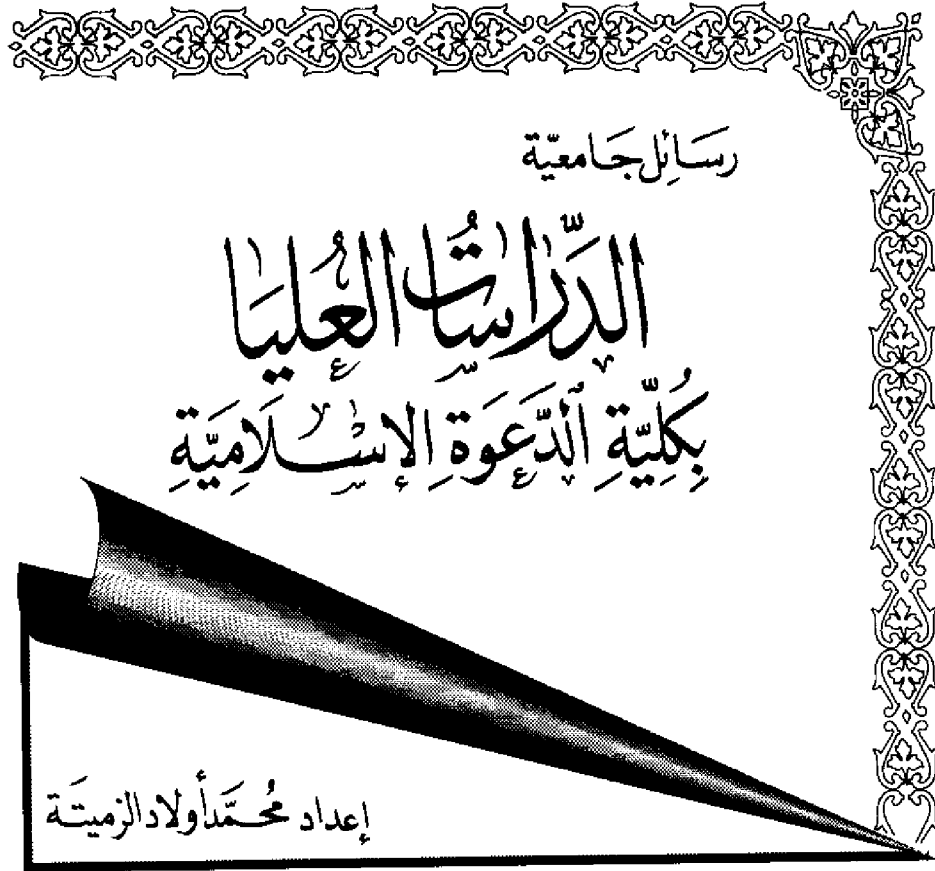 رسَائِل جَامعيّة
الدِّرَاسَاتُ العُليَا
بِكُلِّيَّةِ الدَّعوَةِ الإِسْلَامِيَّةِ
إعداد محُمَّد أولاد الزميتَة